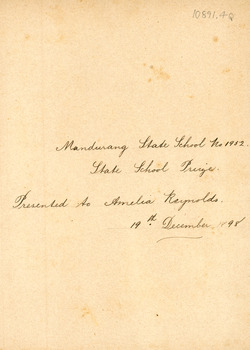 10891.4a
Mandurang State School No 1952.
State School Prize.
Presented to Amelia Reynolds.
19th December,